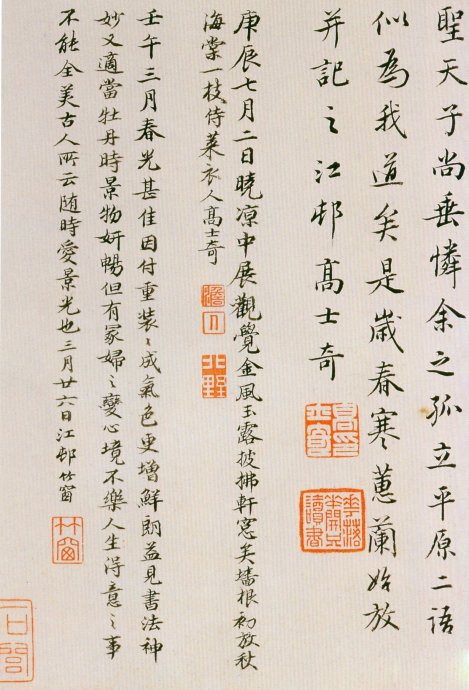 聖天子尚垂憐余之孤立平原二語
似為我道矣是歲春寒蕙蘭始放
并記之江邨高士奇
庚辰七月二日曉涼中展觀覺金風玉露披拂軒窓矣墻根初放秋
海棠一枝侍萊衣人高士奇
壬午三月春光甚佳因付重裝〻成氣色更增鮮朗益見書法神
妙又適當牡丹時景物妍暢但有冢婦之變心境不樂人生得意之事
不能全美古人所云随時愛景光也三月廿六日江邨竹窗
花落
無聞見
讀書
北野
竹窗